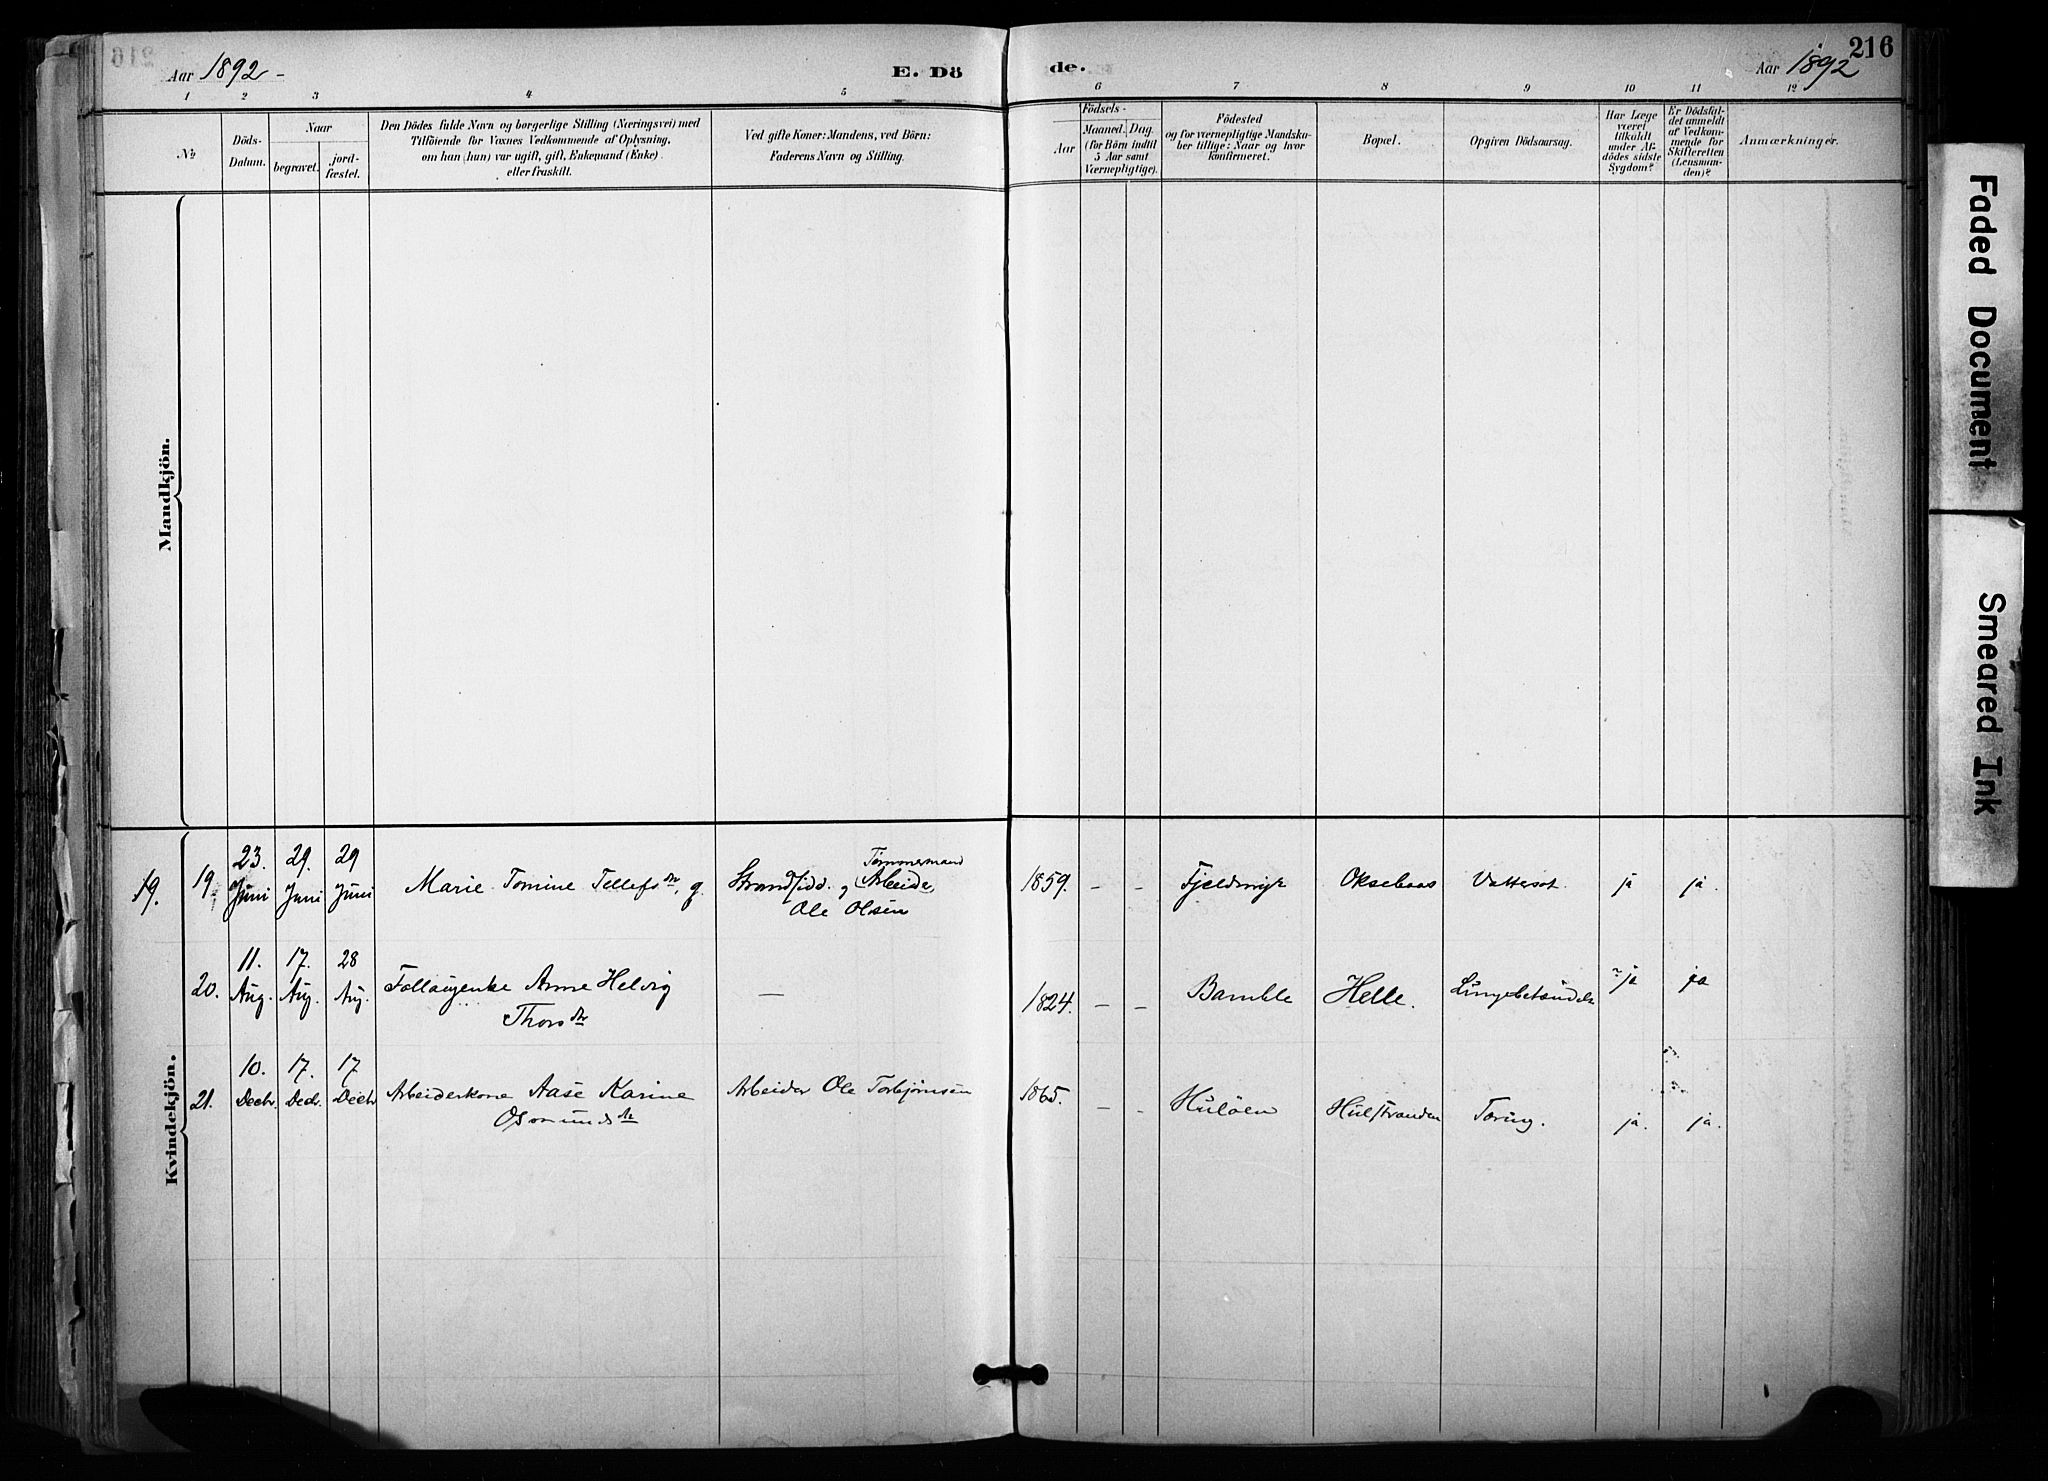 216
Aar 1892 -
E. Dö
de.
Aar 1892
1 2 3 4 5 6 7 8 9 10 11 12
No
Döds-
Datum.
Naar
begravet.
jord-
fæstet.
Den Dödes fulde Navn og borgerlige Stilling (Næringsvei) med
Tilföiende for Voxnes Vedkommende af Oplysning,
om han (hun) var ugift, gift, Enkemand (Enke)
eller fraskilt.
Ved gifte Koner: Mandens, ved Börn:
Faderens Navn og Stilling.
Födsels-
Aar
Maaned. Dag.
(for Börn indtil
5 Aar samt
Værnepligtige).
Födested
og for værnepligtige Mandska-
ber tillige: Naar og hvor
konfirmeret.
Bopæl.
Opgiven Dödsaarsag.
Har Læge
været
tilkaldt
under Af-
dödes sidste
Sygdom?
Er Dödsfal-
det anmeldt
af Vedkom-
mende for
Skifteretten
(Lensman-
den)?
Anmærkninger.
Mandkjön.
Kvindekjön.
19.
19.
23.
Juni
29.
Juni
29
Juni
Marie Tomine Tellefsdtr, g.
Strandsidd. og
Tømmermand
Arbeider
Ole Olsen
1859. - -
Oksebaas
Vattersot.
ja
ja.
20.
11.
Aug.
17.
Aug.
28
Aug.
Anne Helvig
Thorsdtr
—
1824. - -
Bamble
Helle.
Lungebetændelse
ja
ja
21.
10.
Decbr.
17.
Decb.
17
Decbr
Arbeiderkone Aase Karine
Osmundsdtr
Arbeider Ole Torbjørnsen
1865. - -
Huløen
Hulstranden
Tæring.
ja.
ja.
Faded Document
Smeared Ink